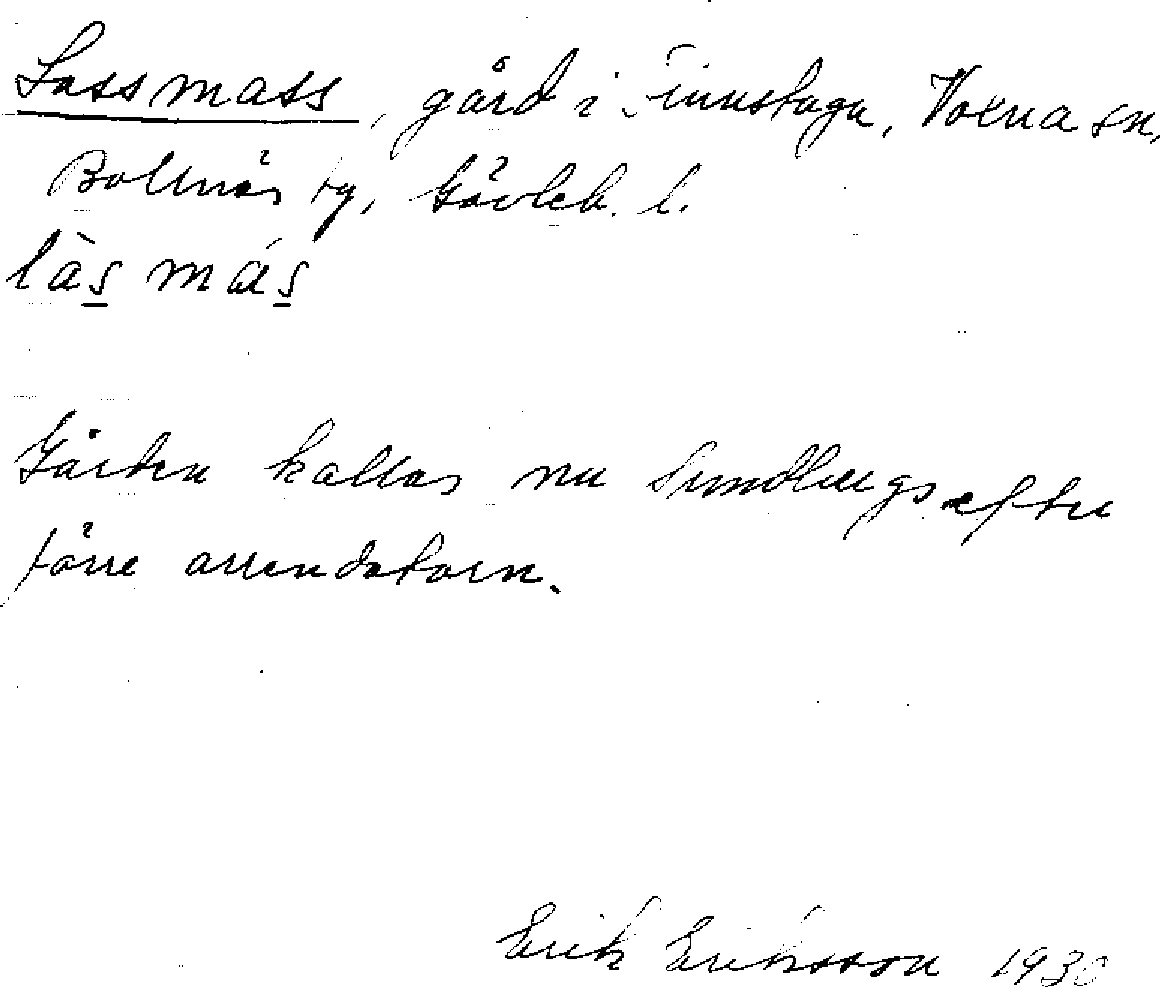 Lassmass, gård i Finnstuga, Voxna sn,
Bollnäs tg, Gävleb. l.
làs más
Gården kallas nu Sundbergs efter
förre arrendatorn.
Erik Eriksson 1930